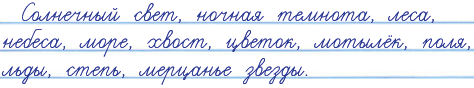 Солнечный свет, ночная темнота, леса,
небеса, море, хвост, цветок, мотылёк, поля,
льды, степь, мерцанье звезды.